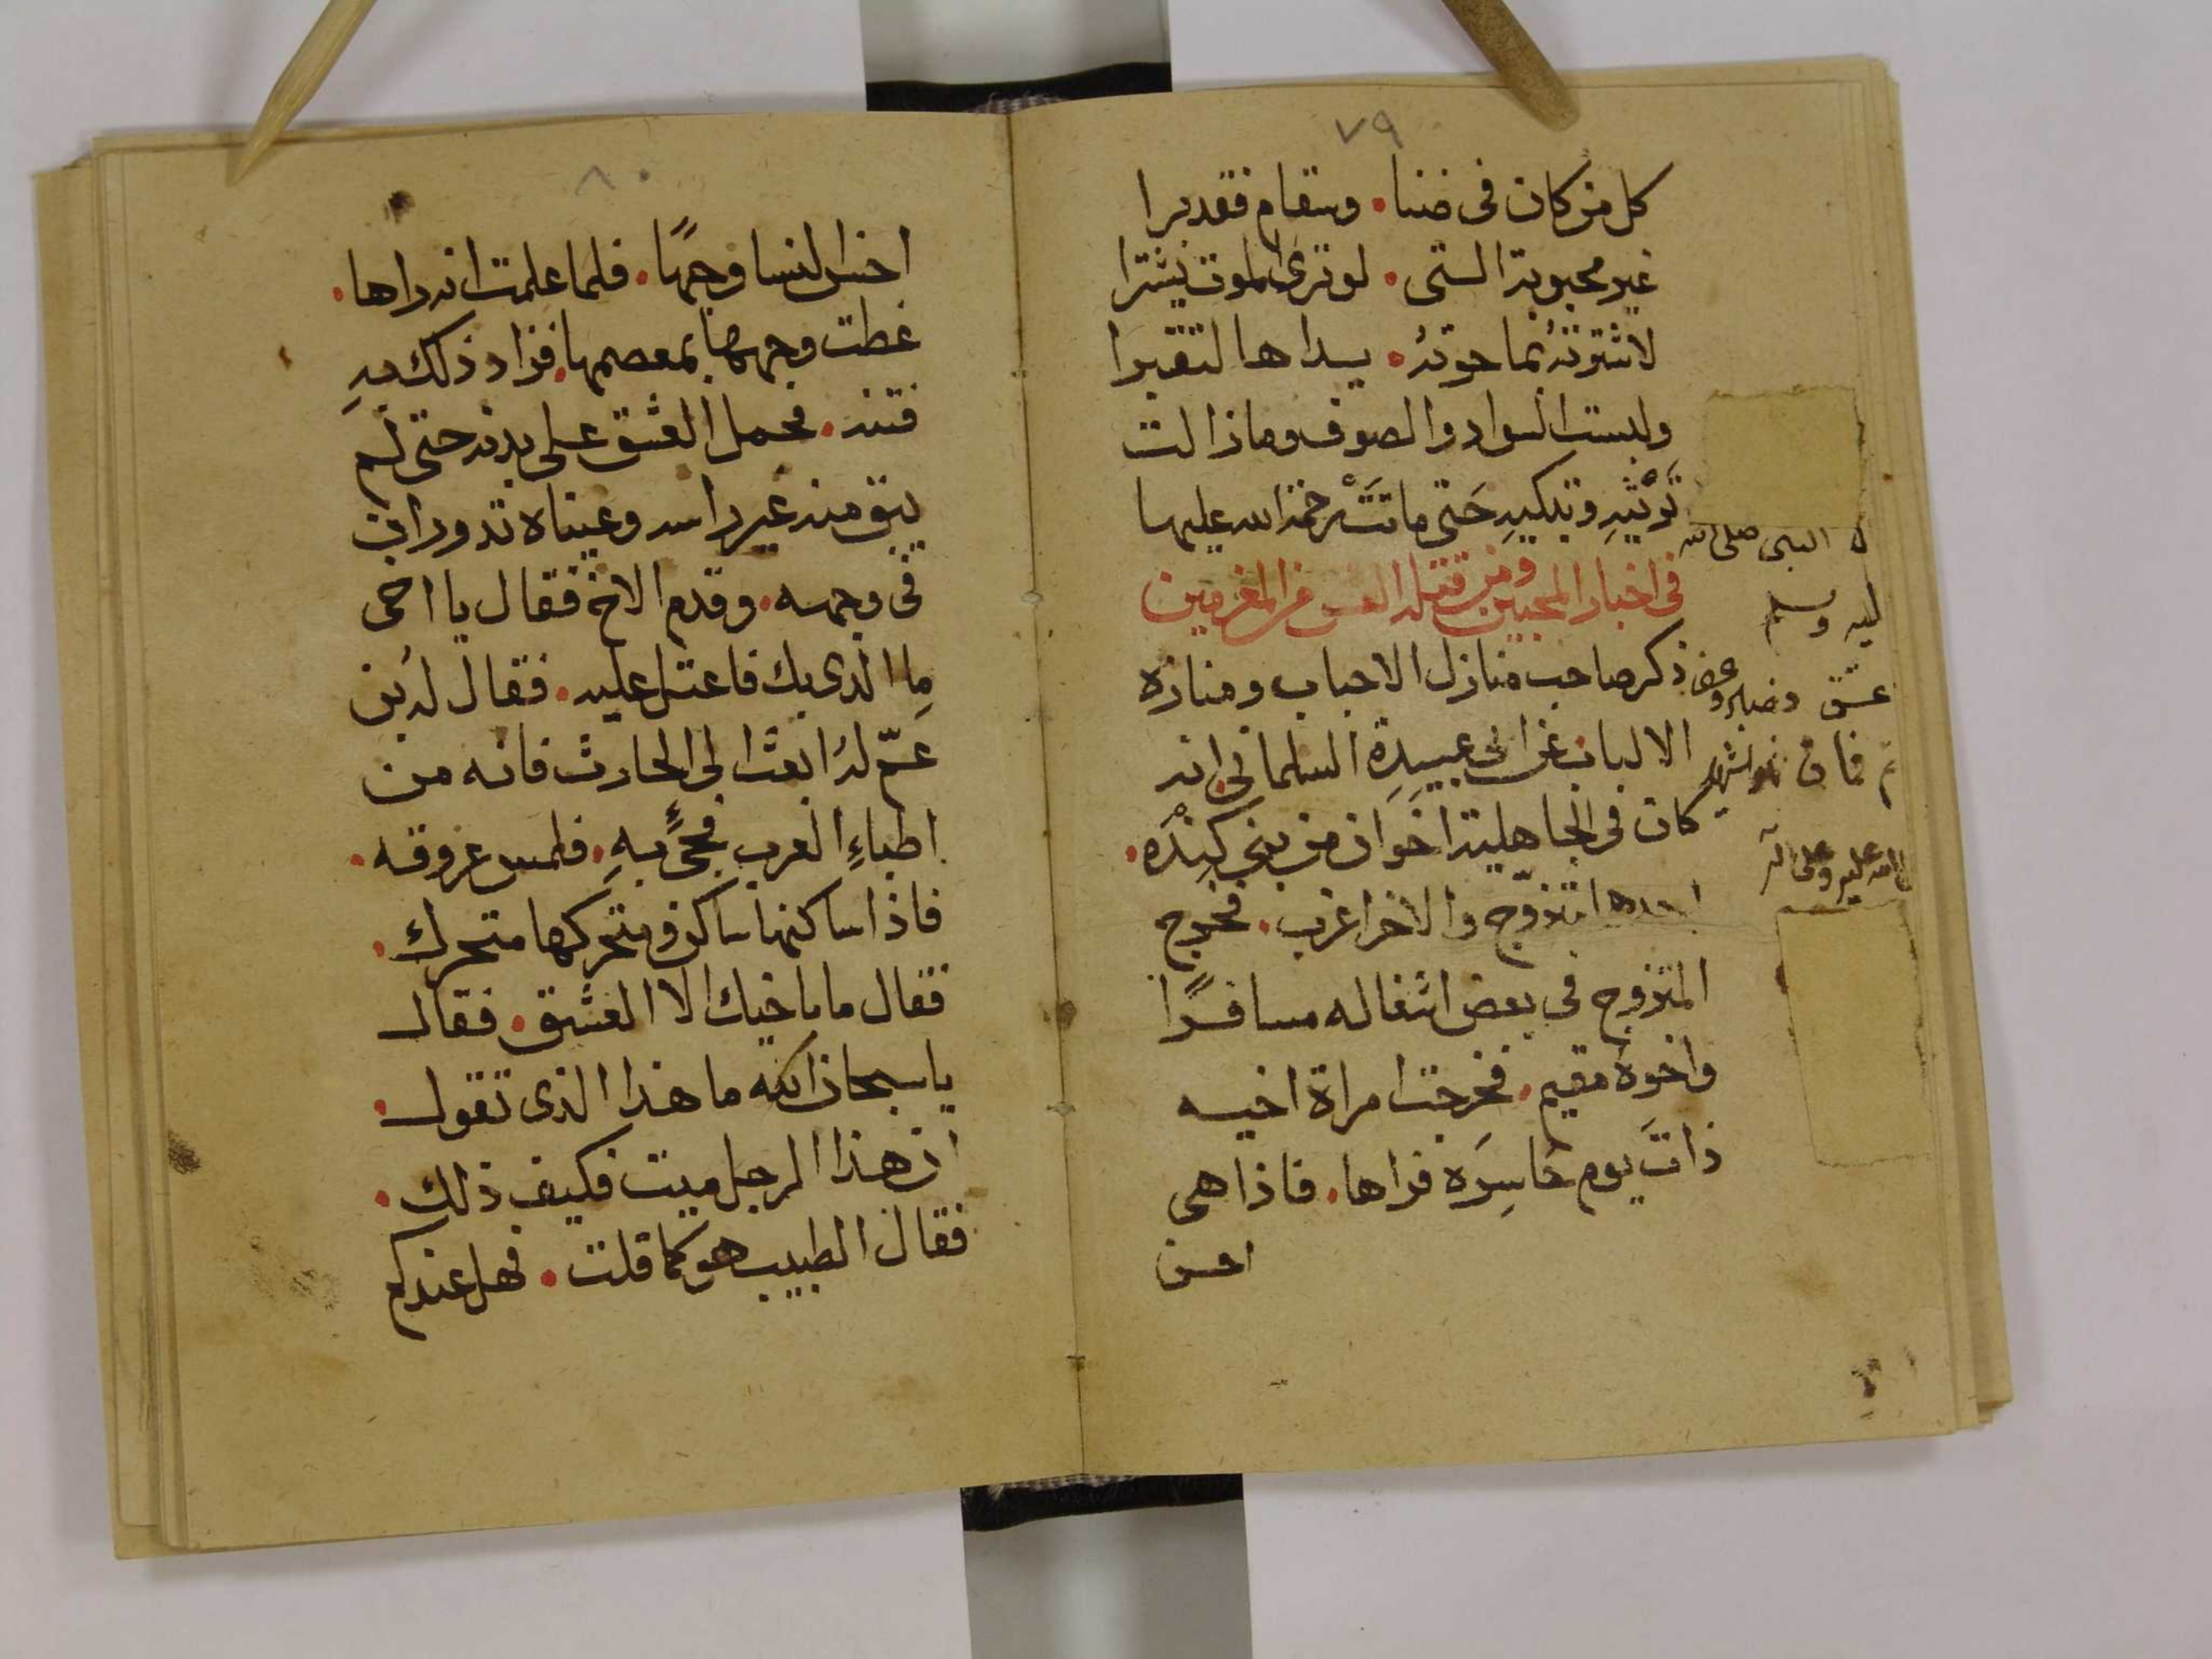 ٧٩
كل من كان فى ضنا. وسقام فقد برا
غير محبوبة التى. لو ترى الموت يشترا
لاشترته بما حوته. يداها لتقبرا
ولبست السواد والصوف وما زالت
ترثيهِ وتبكيهِ حَتى ماتَتْ رحمة الله عليها
فى اخبار المحبين ومن قتله العشق من المغرمين
ذكر صاحب منازل الاحباب ومنازه
الالباب عن ابى عبيدة السلمانى انه
كان فى الجاهلية اخوان من بنى كِنْدَه.
احدهما متزوّج والاخر اعزب. فخرج
المتزوج فى بعض اشغاله مسافرًا
واخوهُ مقيم. فخرجت امراة اخيه
ذاتَ يوم حاسِرَه فراها. فاذا هى
احسن
النبى صلى الله
ليه وسلم
عشق وصبر وعف
م فمات شهيد
الله عليه وعلى آله
٨٠
احسن النسا وجهًا. فلما علمت انه راها.
غطت وجهها بمعصمها. فزاد ذلك بهِ
فتنه. فحمل العشق على بدنه حتى لم
يبق منه غير راسه وعيناه تدوران
فى وجهه. وقدم الاخ فقال يا اخى
ما الذى بك فاعتل عليه. فقال له بن
عمّ له ابعث الى الحارث فانه من
اطباءِ العرب فجئ بهِ. فلمس عروقه.
فاذا ساكنها ساكن ومتحركها متحرك.
فقال ما باخيك الا العشق. فقال
يا سبحان الله ما هذا الذى تقول.
ان هذا الرجل ميت فكيف ذلك.
فقال الطبيب هو كما قلت. فهل عندكم